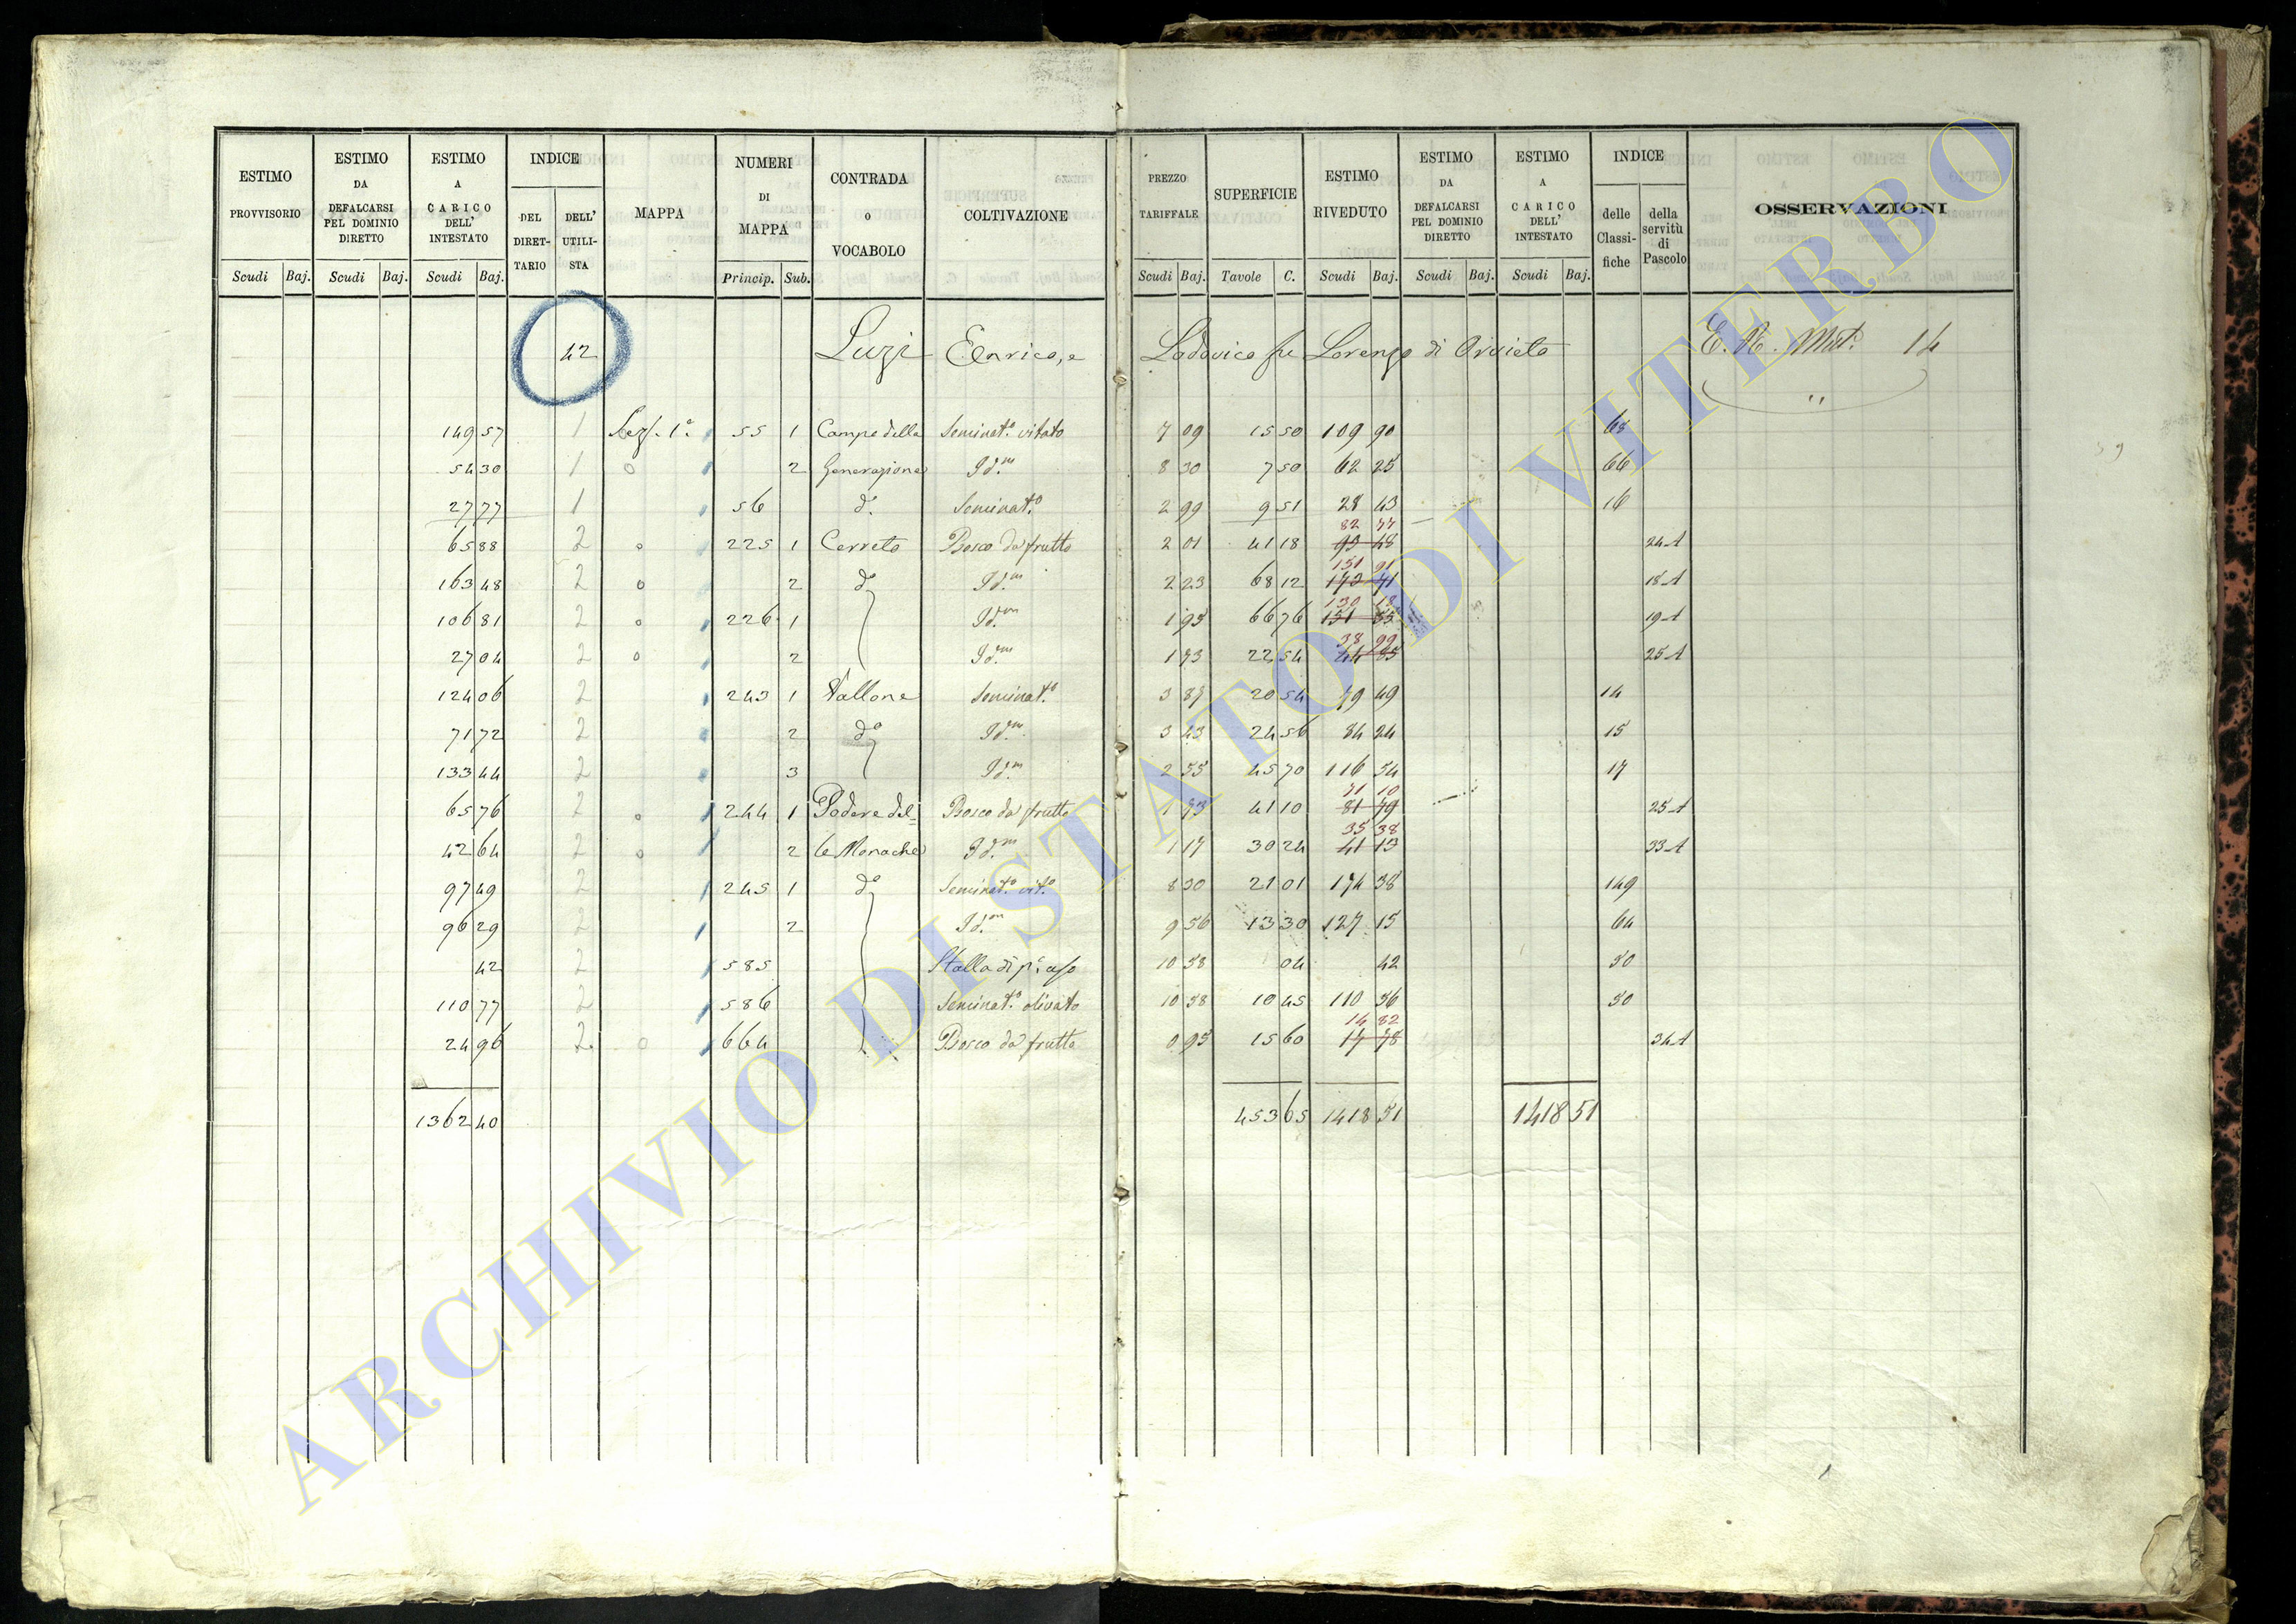 ESTIMO PROVVISORIO Scudi Baj.
ESTIMO DA DEFALCARSI PEL DOMINIO DIRETTO Scudi Baj.
ESTIMO A CARICO DELL' INTESTATO Scudi Baj.
INDICE DEL DIRETTARIO DELL' UTILISTA
MAPPA
NUMERI DI MAPPA Princip. Sub.
CONTRADA o VOCABOLO
COLTIVAZIONE
PREZZO TARIFFALE Scudi Baj.
SUPERFICIE Tavole C.
ESTIMO RIVEDUTO Scudi Baj.
ESTIMO DA DEFALCARSI PEL DOMINIO DIRETTO Scudi Baj.
ESTIMO A CARICO DELL' INTESTATO Scudi Baj.
INDICE delle Classifiche della servitù di Pascolo
OSSERVAZIONI
42 Luzi Enrico, e Lodovico fu Lorenzo di Orvieto E. N. Mat. 14
149 57 1 Sez. 1ª 55 1 Campo della Seminat.º vitato 7 09 15 50 109 90 68
54 30 1 o 2 Generazione Id.m 8 30 7 50 62 25 66
27 77 1 56 d.º Seminat.º 2 99 9 51 28 43 16
65 88 2 o 225 1 Cerreto Bosco da frutto 2 01 41 18 82 77 24 A
163 48 2 o 2 d.º Id.m 2 23 68 12 151 91 18 A
106 81 2 o 226 1 Id.m 1 95 66 76 130 18 19 A
27 04 2 o 2 Id.m 1 73 22 54 38 99 25 A
124 06 2 243 1 Vallone Seminat.º 3 87 20 54 79 49 14
71 72 2 2 d.º Id.m 3 43 24 56 84 24 15
133 44 2 3 Id.m 2 55 45 70 116 54 17
65 76 2 o 244 1 Podere del= Bosco da frutto 1 73 41 10 71 10 81 79 25 A
42 64 2 o 2 le Monache Id.m 1 17 30 24 35 38 41 13 33 A
97 49 2 245 1 d.º Seminat.º vit.º 8 30 21 01 174 38 149
96 29 2 2 Id.m 9 56 13 30 127 15 64
42 2 585 Stalla di p.º uso 10 58 04 42 50
110 77 2 586 Seminat.º olivato 10 58 10 45 110 56 50
24 96 2 o 664 Bosco da frutto 0 95 15 60 14 82 17 78 34 A
1362 40 453 65 1418 51 1418 51
ARCHIVIO DI STATO DI VITERBO